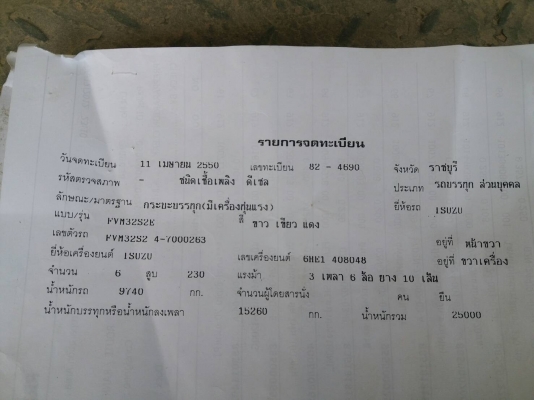 รายการจดทะเบียน
วันจดทะเบียน 11 เมษายน 2550 เลขทะเบียน 82 - 4690 จังหวัด ราชบุรี
รหัสตรวจสภาพ - ชนิดเชื้อเพลิง ดีเซล ประเภท รถบรรทุก ส่วนบุคคล
ลักษณะ/มาตรฐาน กระบะบรรทุก(มีเครื่องทุ่นแรง) ยี่ห้อรถ ISUZU
แบบ/รุ่น FVM32S2E สี ขาว เขียว แดง
เลขตัวรถ FVM32S2 4-7000263 อยู่ที่ หน้าขวา
ยี่ห้อเครื่องยนต์ ISUZU เลขเครื่องยนต์ 6HE1 408048 อยู่ที่ ขวาเครื่อง
จำนวน 6 สูบ 230 แรงม้า 3 เพลา 6 ล้อ ยาง 10 เส้น
น้ำหนักรถ 9740 กก. จำนวนผู้โดยสารนั่ง คน ยืน
น้ำหนักบรรทุกหรือน้ำหนักลงเพลา 15260 กก. น้ำหนักรวม 25000